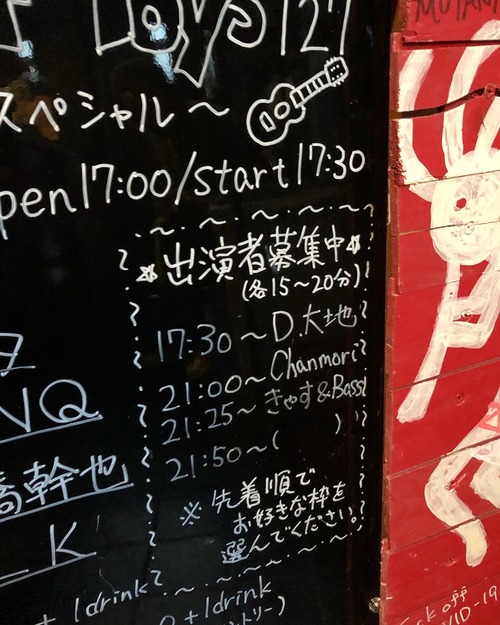 Toys 127
スペシャル～
pen 17:00/start 17:30
出演者募集中
(各15～20分)
17:30～D.大地
21:00～Chanmori
21:25～きゃす&Bass
21:50～(　　)
タ
VQ
橋幹也
K
※先着順で
お好きな枠を
選んでください。
+1drink
+1drink
トリー)
off
VID-19